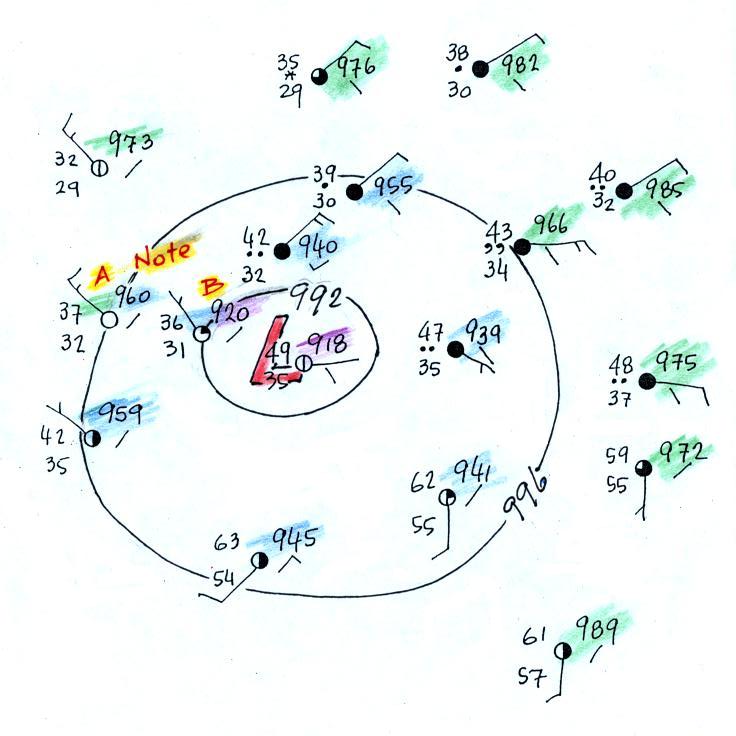 35
976
29
38
982
30
973
32
29
39
955
30
40
985
32
43
966
34
42
940
32
A Note
37
960
32
B
36
920
31
992
L
49
918
35
47
939
35
48
975
37
42
959
35
59
972
55
62
941
55
996
63
945
54
61
989
57